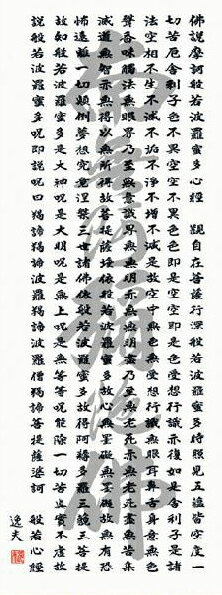 佛說摩訶般若波羅蜜多心經 觀自在菩薩行深般若波羅蜜多時照見五蘊皆空度一
切苦厄舍利子色不異空空不異色色即是空空即是色受想行識亦復如是舍利子是諸
法空相不生不滅不垢不淨不增不減是故空中無色無受想行識無眼耳鼻舌身意無色
聲香味觸法無眼界乃至無意識界無無明亦無無明盡乃至無老死亦無老死盡無苦集
滅道無智亦無得以無所得故菩提薩埵依般若波羅蜜多故心無罣礙無罣礙故無有恐
怖遠離一切顛倒夢想究竟涅槃三世諸佛依般若波羅蜜多故得阿耨多羅三藐三菩提
故知般若波羅蜜多是大神呪是大明呪是無上呪是無等等呪能除一切苦真實不虛故
說般若波羅蜜多呪即說呪曰揭諦揭諦波羅揭諦波羅僧揭諦菩提薩婆訶 般若心經
逸夫
南無阿彌陀佛